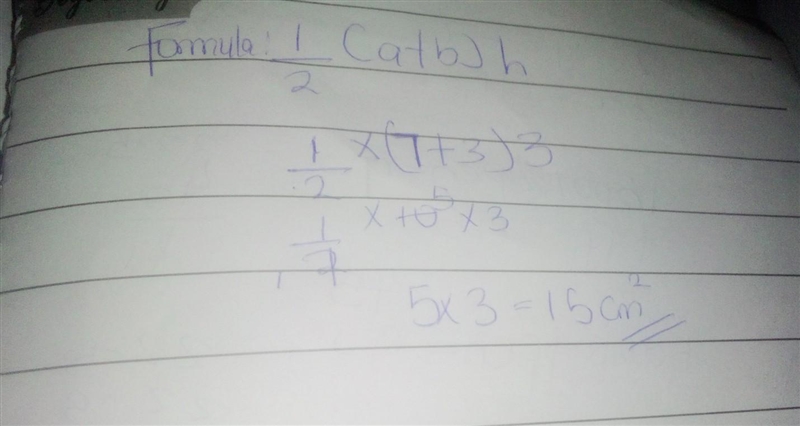 Formula: 1/2 (a+b) h
1/2 × (7+3) 3
1/2 × 10 5 × 3
5 × 3 = 15 cm²